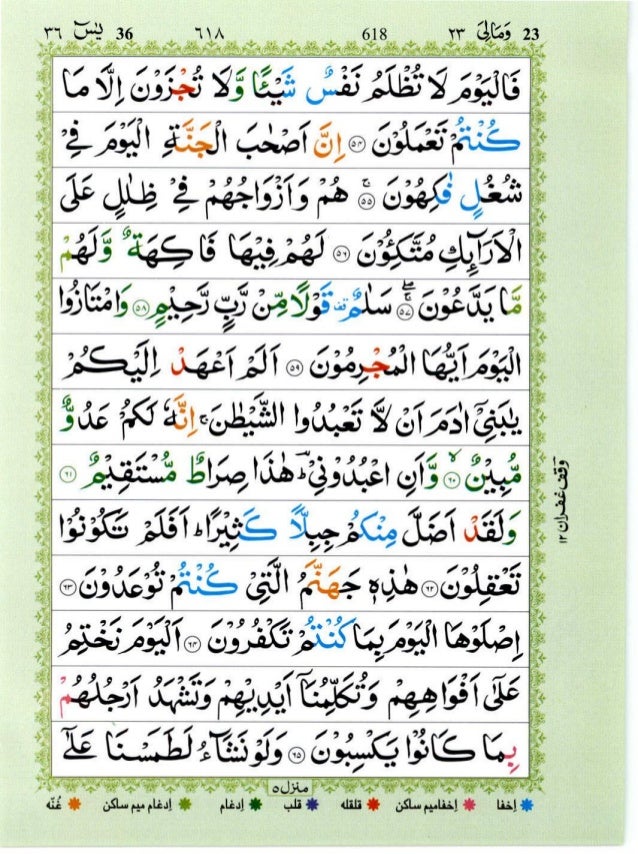 ٣٦ يٰسٓ 36 ٦١٨ 618 ٢٣ وَمَالِىَ 23
فَالْيَوْمَ لَا تُظْلَمُ نَفْسٌ شَيْئًا وَّلَا تُجْزَوْنَ اِلَّا مَا
كُنْتُمْ تَعْمَلُوْنَ ﴿۵۴﴾ اِنَّ اَصْحٰبَ الْجَنَّةِ الْيَوْمَ فِيْ
شُغُلٍ فٰكِهُوْنَ ۚ﴿۵۵﴾ هُمْ وَاَزْوَاجُهُمْ فِيْ ظِلٰلٍ عَلَى
الْاَرَآئِكِ مُتَّكِـُٔوْنَ ﴿۵۶﴾ لَهُمْ فِيْهَا فَاكِهَةٌ وَّلَهُمْ
مَّا يَدَّعُوْنَ ۚۖ﴿۵۷﴾ سَلٰمٌ ۟ قَوْلًا مِّنْ رَّبٍّ رَّحِيْمٍ ﴿۵۸﴾ وَامْتَازُوا
الْيَوْمَ اَيُّهَا الْمُجْرِمُوْنَ ﴿۵۹﴾ اَلَمْ اَعْهَدْ اِلَيْكُمْ
يٰبَنِيْٓ اٰدَمَ اَنْ لَّا تَعْبُدُوا الشَّيْطٰنَ ۚ اِنَّهٗ لَكُمْ عَدُوٌّ
مُّبِيْنٌ ۙ﴿۶۰﴾ وَّاَنِ اعْبُدُوْنِيْ ؔؕ هٰذَا صِرَاطٌ مُّسْتَقِيْمٌ ﴿۶۱﴾
وَلَقَدْ اَضَلَّ مِنْكُمْ جِبِلًّا كَثِيْرًا ؕ اَفَلَمْ تَكُوْنُوْا
تَعْقِلُوْنَ ﴿۶۲﴾ هٰذِهٖ جَهَنَّمُ الَّتِيْ كُنْتُمْ تُوْعَدُوْنَ ﴿۶۳﴾
اِصْلَوْهَا الْيَوْمَ بِمَا كُنْتُمْ تَكْفُرُوْنَ ﴿۶۴﴾ اَلْيَوْمَ نَخْتِمُ
عَلٰٓى اَفْوَاهِهِمْ وَتُكَلِّمُنَآ اَيْدِيْهِمْ وَتَشْهَدُ اَرْجُلُهُمْ
بِمَا كَانُوْا يَكْسِبُوْنَ ﴿۶۵﴾ وَلَوْ نَشَآءُ لَطَمَسْنَا عَلٰٓى
وقف غفران ١٢
منزل ۵
اِخفا اِخفامیم ساکن قلقله قلب اِدغام اِدغام میم ساکن غُنّه